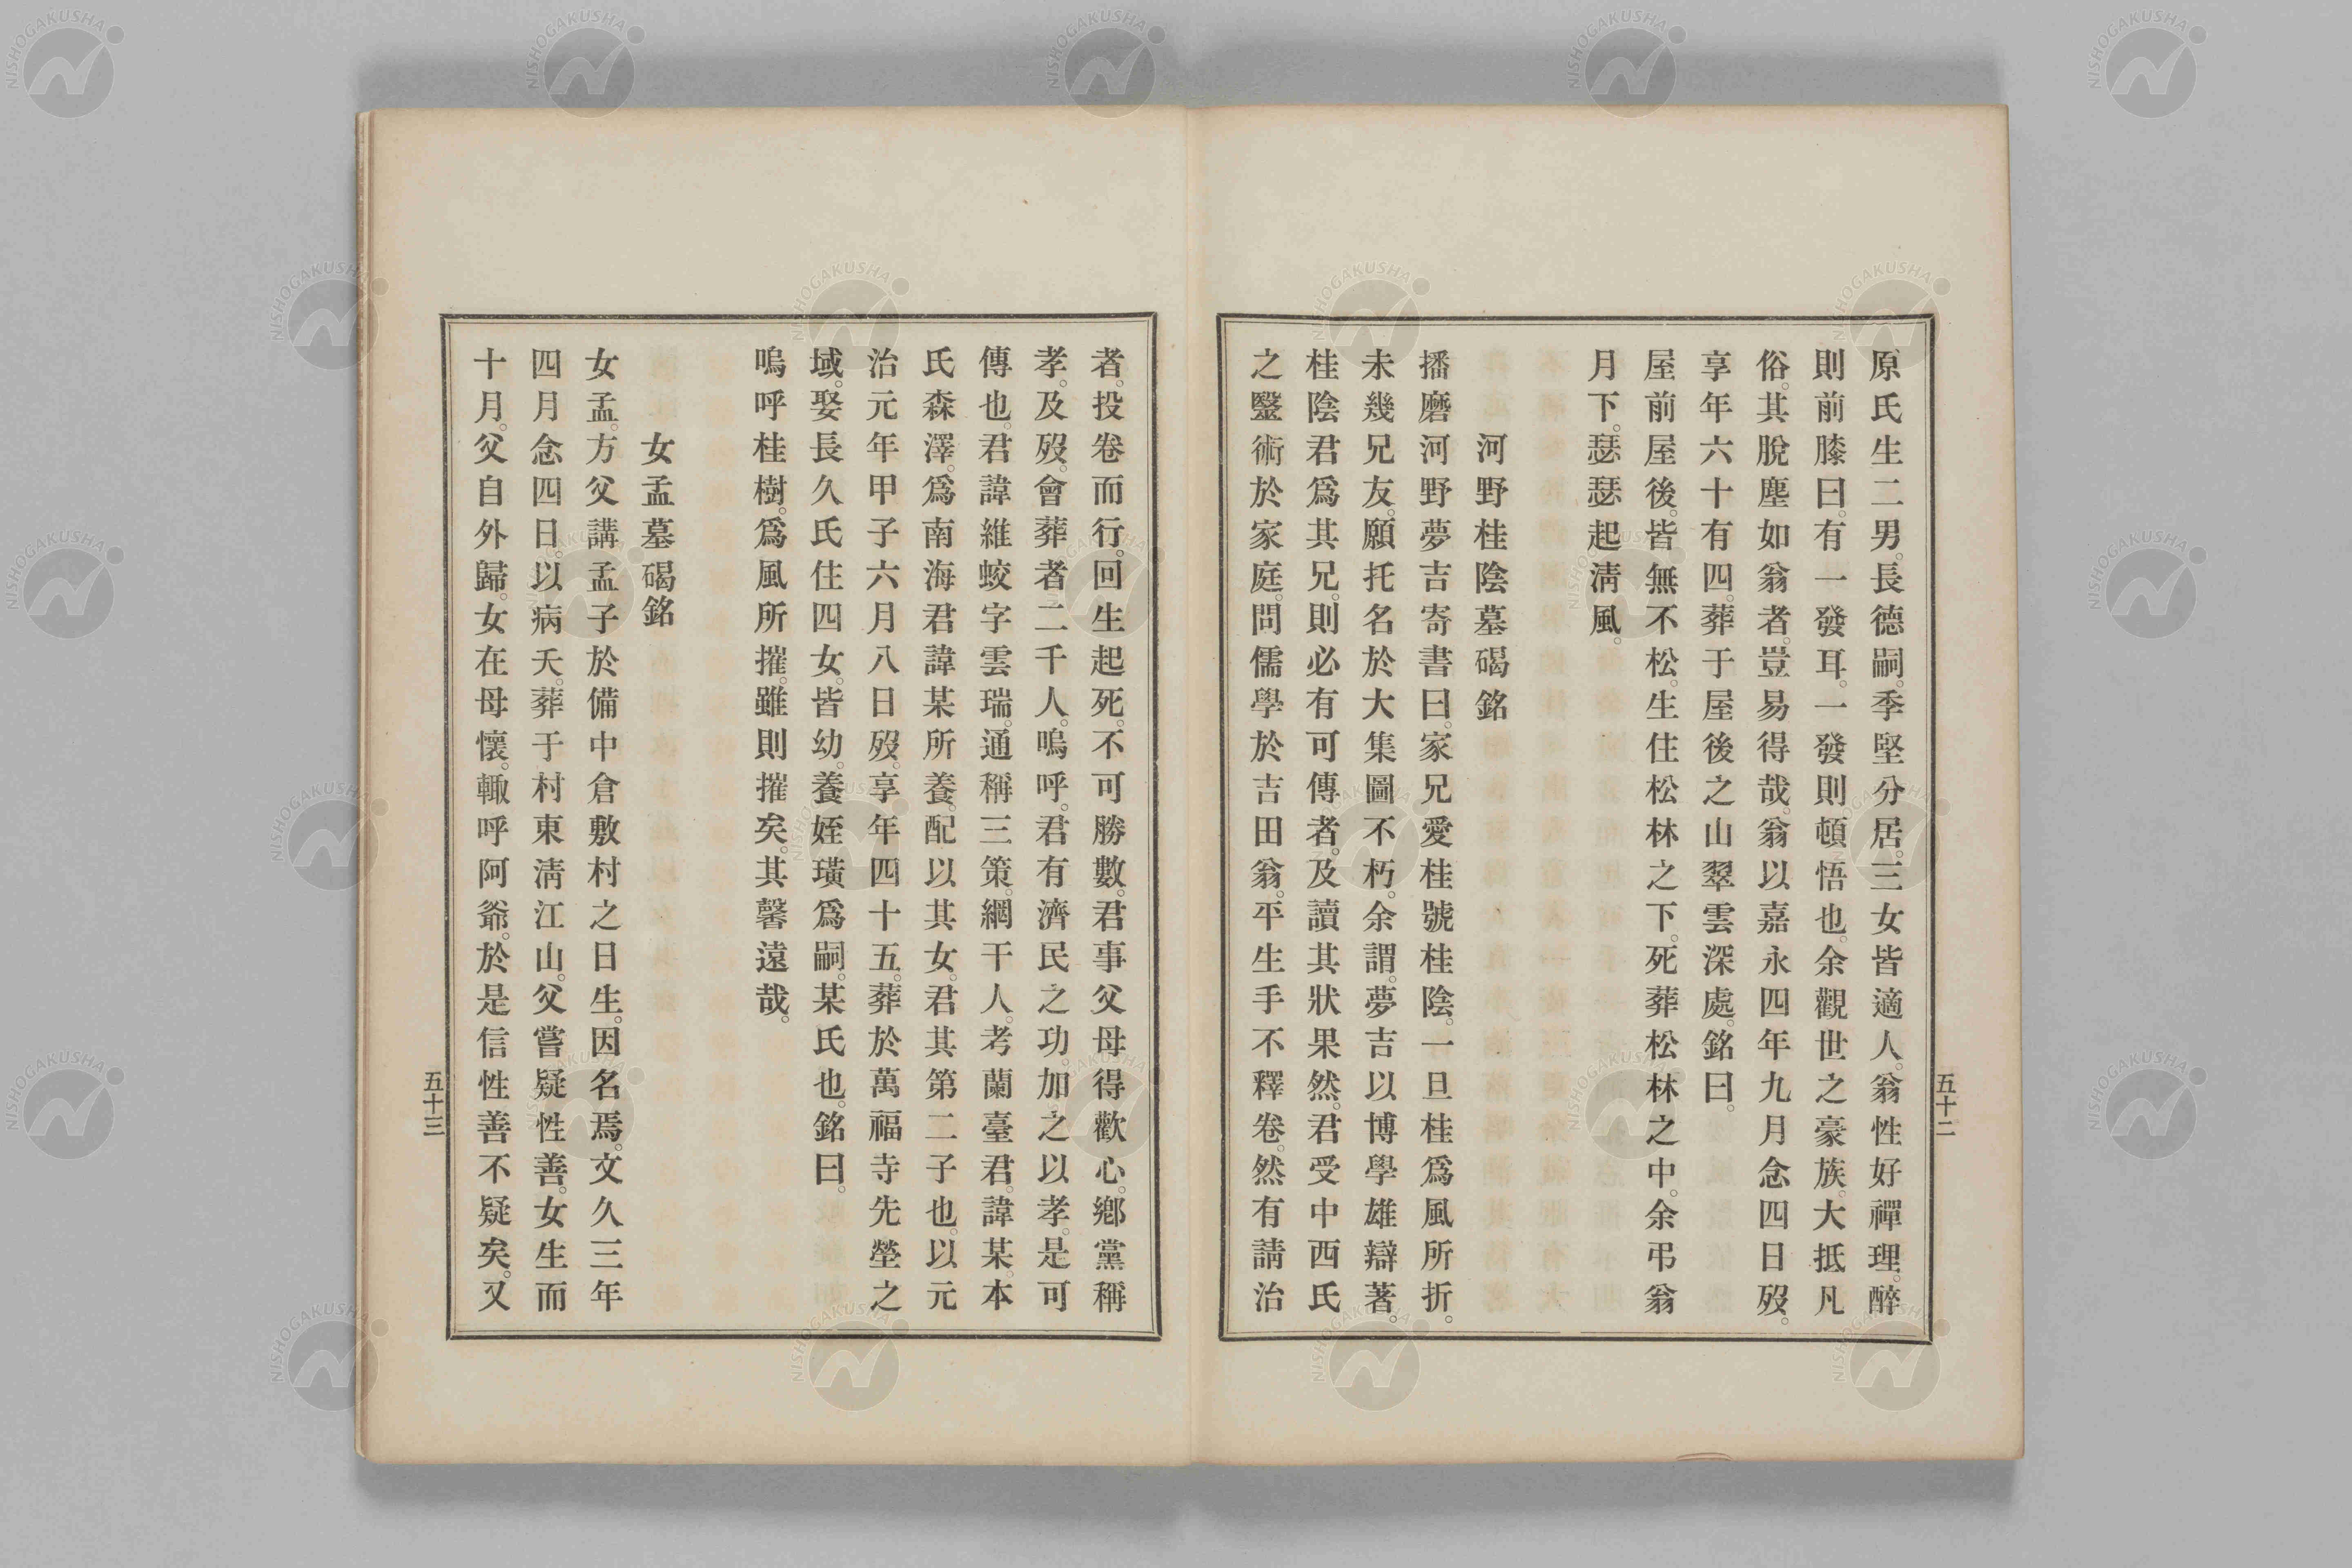 原氏生二男。長德嗣。季堅分居。三女皆適人。翁性好禪理。醉
則前膝曰。有一發耳。一發則頓悟也。余觀世之豪族。大抵凡
俗。其脫塵如翁者。豈易得哉。翁以嘉永四年九月念四日歿。
享年六十有四。葬于屋後之山翠雲深處。銘曰。
屋前屋後。皆無不松。生住松林之下。死葬松林之中。余弔翁
月下。瑟瑟起淸風。
河野桂陰墓碣銘
播磨河野夢吉寄書曰。家兄愛桂號桂陰。一旦桂爲風所折。
未幾兄友。願托名於大集圖不朽。余謂。夢吉以博學雄辯著。
桂陰君爲其兄。則必有可傳者。及讀其狀果然。君受中西氏
之毉術於家庭。問儒學於吉田翁。平生手不釋卷。然有請治
五十二
者。投卷而行。回生起死。不可勝數。君事父母得歡心。鄕黨稱
孝。及歿。會葬者二千人。嗚呼。君有濟民之功。加之以孝。是可
傳也。君諱維蛟字雲瑞。通稱三策。網干人。考蘭臺君。諱某。本
氏森澤。爲南海君諱某所養。配以其女。君其第二子也。以元
治元年甲子六月八日歿。享年四十五。葬於萬福寺先塋之
域。娶長久氏住四女。皆幼。養姪璜爲嗣。某氏也。銘曰。
嗚呼桂樹。爲風所摧。雖則摧矣。其馨遠哉。
女孟墓碣銘
女孟。方父講孟子於備中倉敷村之日生。因名焉。文久三年
四月念四日。以病夭。葬于村東淸江山。父嘗疑性善。女生而
十月。父自外歸。女在母懷。輙呼阿爺。於是信性善不疑矣。又
五十三
NISHOGAKUSHA